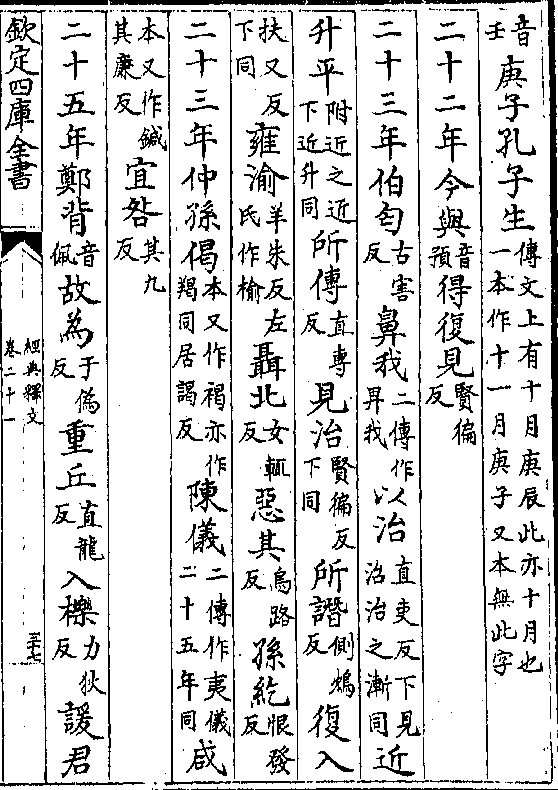 音壬庚子孔子生傳文上有十月庚辰此亦十月也一本作十一月庚子又本無此字
二十二年今與音預得復見賢徧反
二十三年伯匄古害反鼻我二傳作畀我以治直吏反下見治治之漸同近
升平附近之近下近升同所傳直專反見治賢徧反下同所譖側鴆反復入
扶又反下同雍渝羊朱反左氏作榆聶北女輒反惡其烏路反孫紇恨發反
二十三年仲孫偈本又作褐亦作羯同居謁反陳儀二傳作夷儀二十五年同咸
本又作鍼其廉反宜咎其九反
二十五年鄭背音佩故為于偽反重丘直龍反入櫟力狄反諼君
欽定四庫全書
經典釋文
卷二十一
三十七